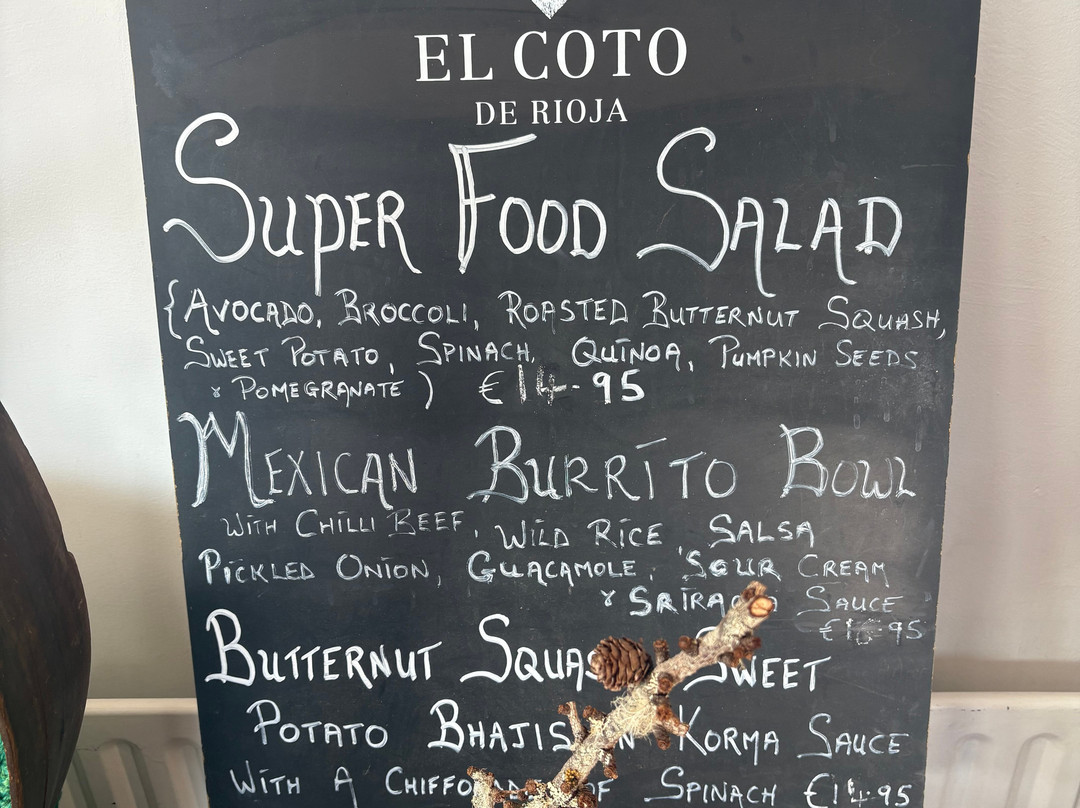 EL COTO
DE RIOJA
SUPER FOOD SALAD
{AVOCADO, BROCCOLI, ROASTED BUTTERNUT SQUASH,
SWEET POTATO, SPINACH, QUINOA, PUMPKIN SEEDS
& POMEGRANATE) €14.95
MEXICAN BURRITO BOWL
WITH CHILLI BEEF, WILD RICE, SALSA
PICKLED ONION, GUACAMOLE, SOUR CREAM
& SAUCE
BUTTERNUT SWEET
POTATO BHAJIS KORMA SAUCE
WITH A OF SPINACH €14.95